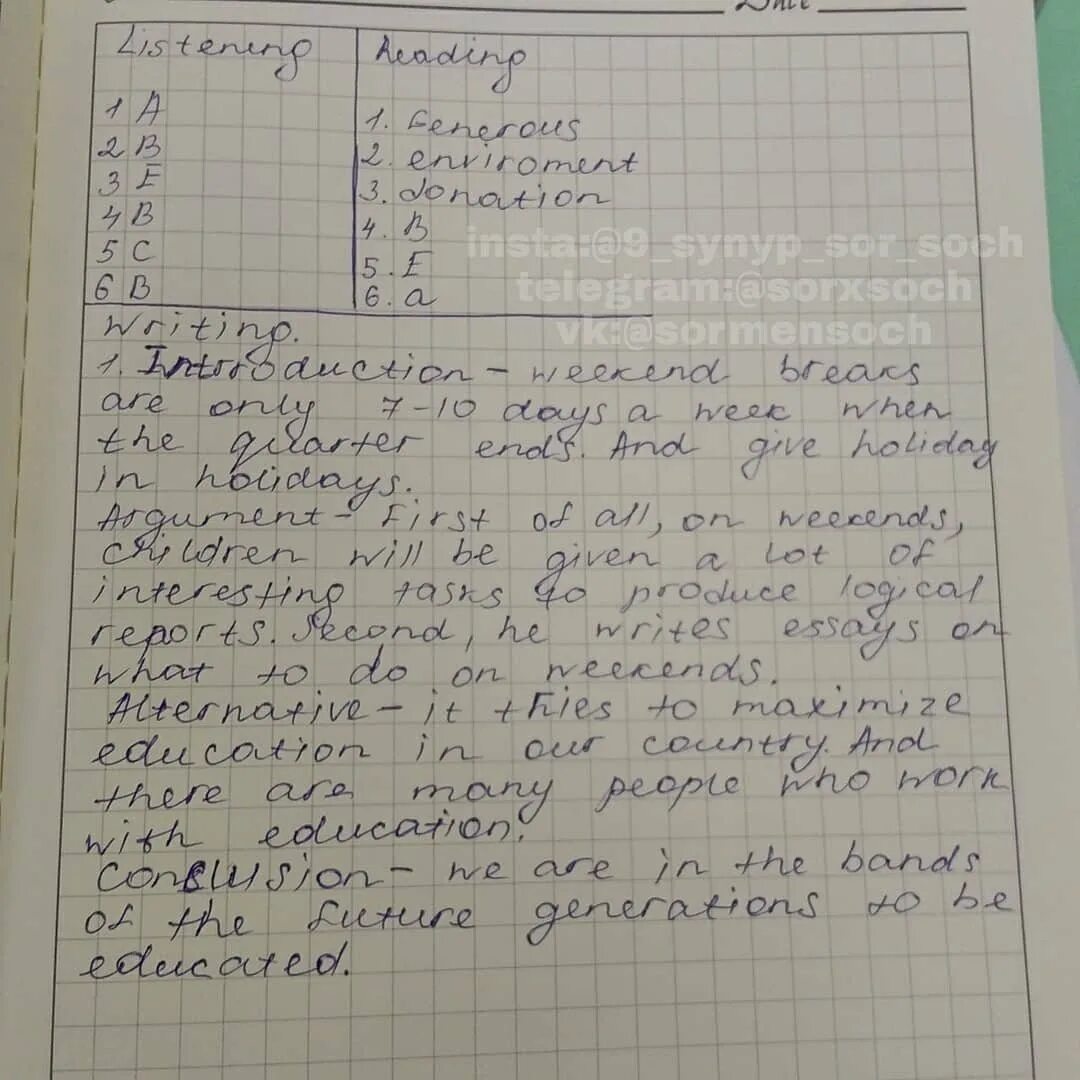 Date
Listening
1 A
2 B
3 E
4 B
5 C
6 B
Reading
1. Generous
2. enviroment
3. donation
4. B
5. E
6. a
insta:@9_synyp_sor_soch
telegram:@sorxsoch
vk:@sormensoch
Writing.
1. Introduction - weekend breaks
are only 7-10 days a week when
the quarter ends. And give holiday
in holidays.
Argument - First of all, on weekends,
children will be given a lot of
interesting tasks to produce logical
reports. Second, he writes essays on
what to do on weekends.
Alternative - it tries to maximize
education in our country. And
there are many people who work
with education.
Conclusion - we are in the bands
of the future generations to be
educated.